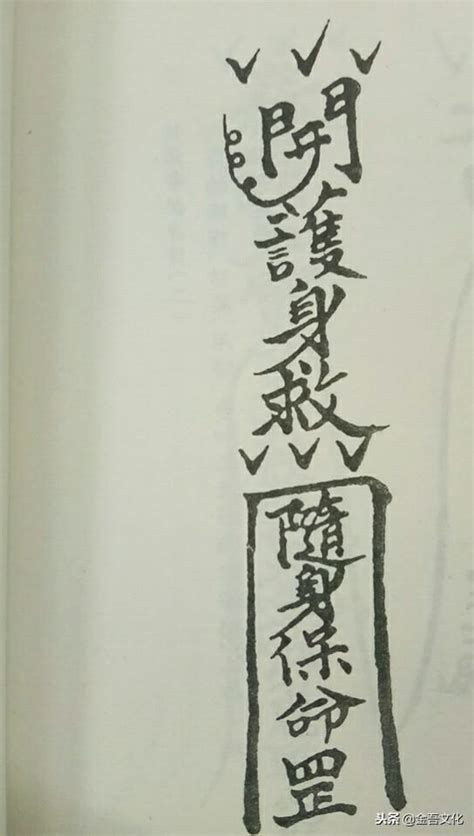 開護身救
隨身保命罡
头条 @金吾文化